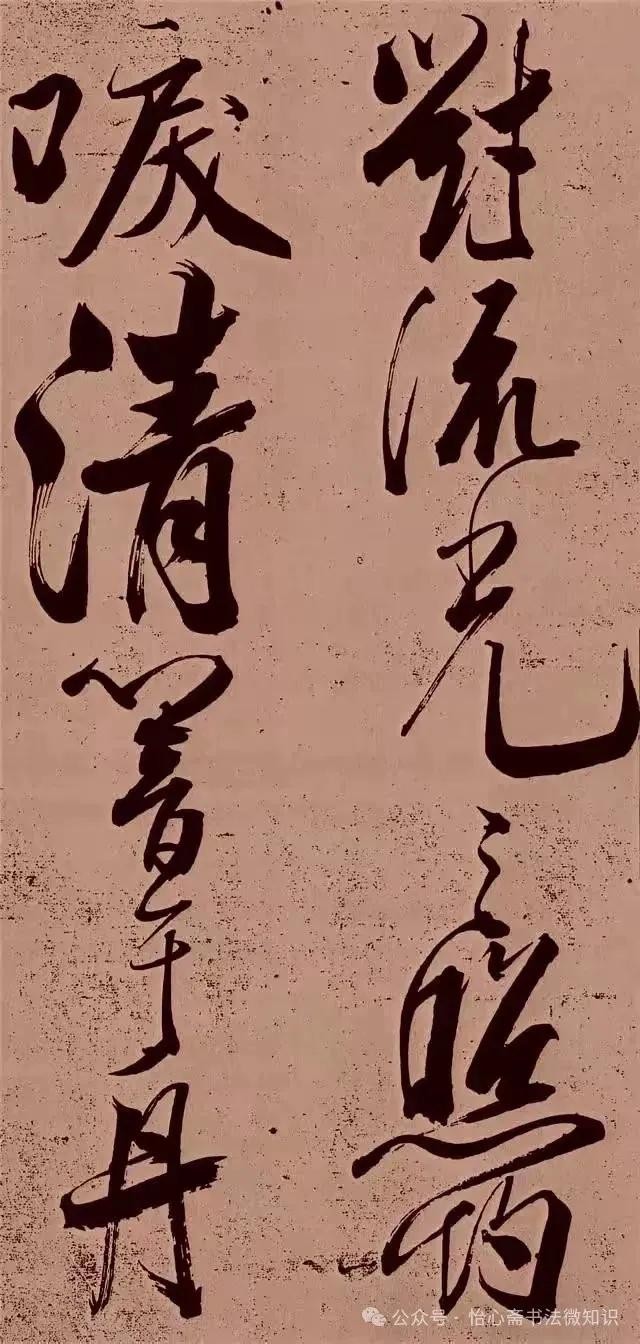 對流光之照灼
唳清響于丹
公众号·怡心斋书法微知识